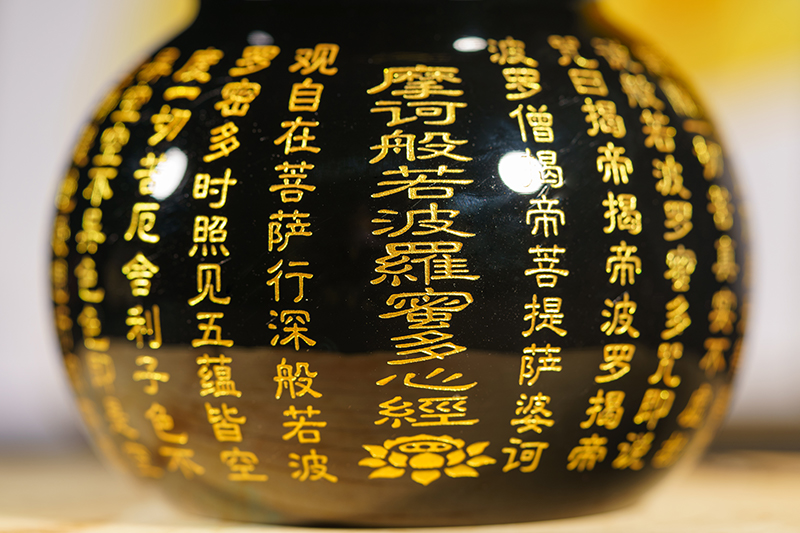 般若波罗蜜多咒即说
咒曰揭帝揭帝波罗揭帝
波罗僧揭帝菩提萨婆诃
摩诃般若波羅蜜多心經
观自在菩萨行深般若波
罗密多时照见五蕴皆空
度一切苦厄舍利子色不
异空空不异色色即是空